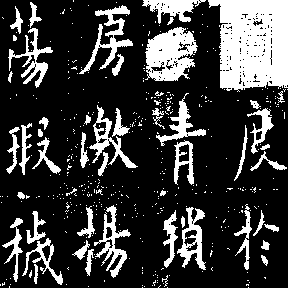 於
青鎖
房激揚
蕩瑕穢